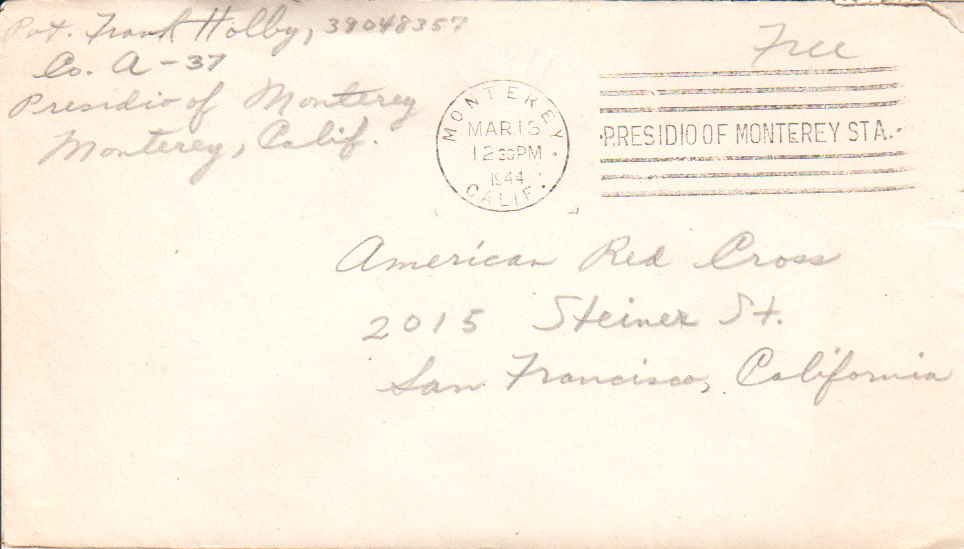 Pvt. Frank Holby, 39048357
Co. A - 37
Presidio of Monterey
Monterey, Calif.
Free
MONTEREY
MAR 15
12 30 PM
1944
CALIF.
PRESIDIO OF MONTEREY STA.
American Red Cross
2015 Steiner St.
San Francisco, California